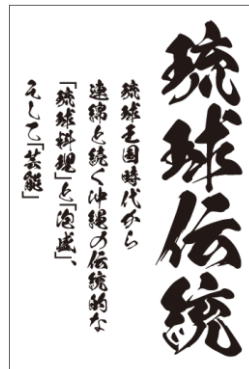 琉球伝統
琉球王国時代から
連綿と続く沖縄の伝統的な
「琉球料理」と「泡盛」、
そして「芸能」